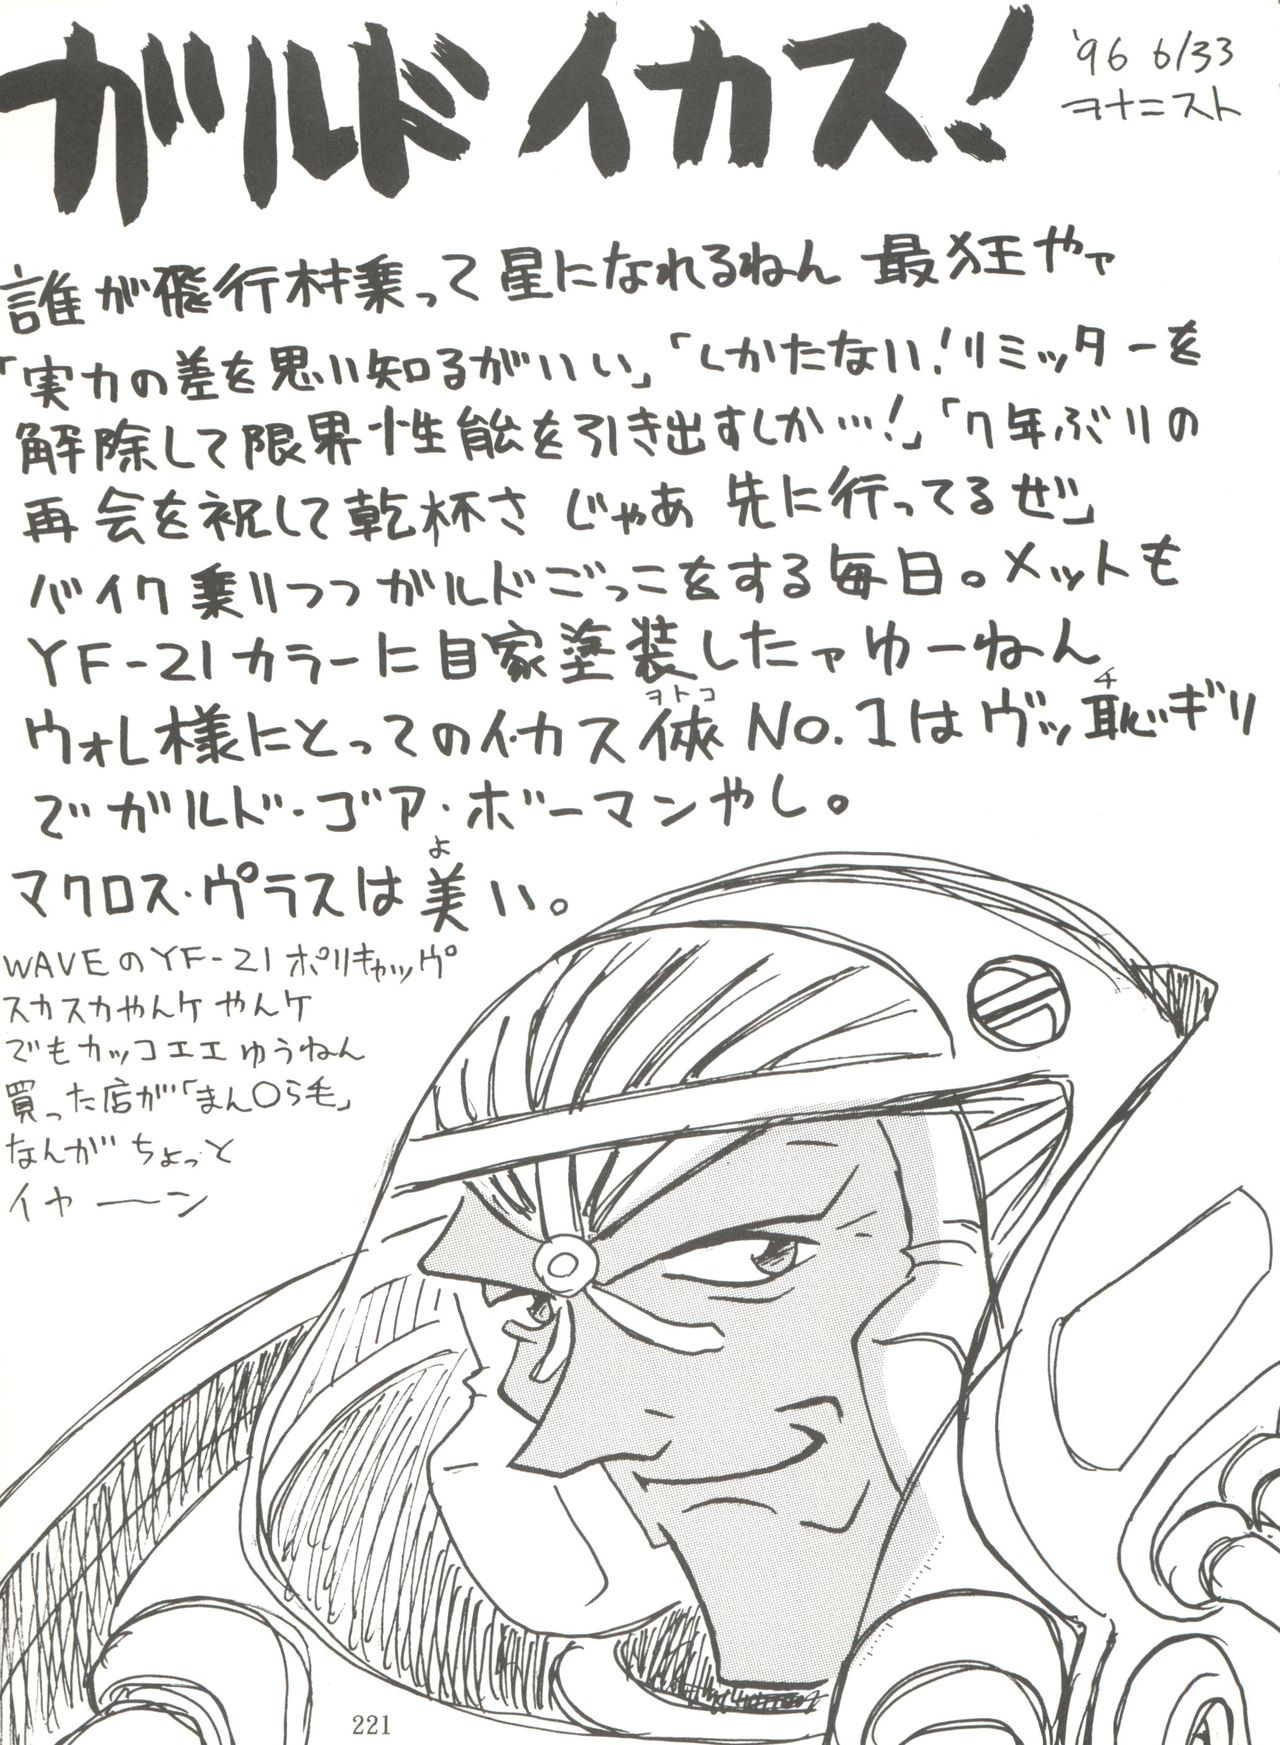 ガルドイカス!
'96 6/33
ヲナニスト
誰が飛行材乗って星になれるねん 最狂やァ
「実力の差を思い知るがいい」「しかたない!リミッターを
解除して限界性能を引き出すしか…!」「7年ぶりの
再会を祝して乾杯さ じゃあ 先に行ってるぜ」
バイク乗りつつガルドごっこをする毎日。メットも
YF-21カラーに自家塗装したャゆーねん
ヲトコ チ
ウォレ様にとってのイ・カス俠 No.1はヴッ恥ギリ
でガルド・ゴア・ボーマンやし。
よ
マクロス・プラスは美い。
WAVEのYF-21 ポリキャップ
スカスカやんケ やんケ
でもカッコエエゆうねん
買った店が「まん〇ら毛」
なんがちょっと
イャーーン
221